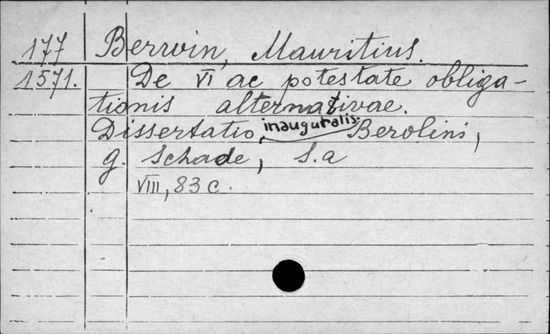 177 Berwin, Mauritius.
1571. De VI ac potestate obliga-
tionis alternativae.
Dissertatio, inauguralis. Berolini,
G. Schade, S.a
VIII, 83 c.